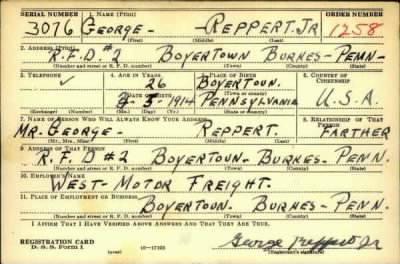 SERIAL NUMBER 1. NAME (Print) ORDER NUMBER
3076 GEORGE- -REPPERT. JR 1258
(First) (Middle) (Last)
2. ADDRESS (Print)
R.F.D #2 BOYERTOWN BURKES- PENN-
(Number and street or R. F. D. number) (Town) (County) (State)
3. TELEPHONE 4. AGE IN YEARS 5. PLACE OF BIRTH 6. COUNTRY OF CITIZENSHIP
✓ 26 BOYERTOWN.
DATE OF BIRTH (Town or county)
5- 1914 PENNSYLVANIA U.S.A.
(Exchange) (Number) (Mo.) (Day) (Yr.) (State or country)
7. NAME OF PERSON WHO WILL ALWAYS KNOW YOUR ADDRESS 8. RELATIONSHIP OF THAT PERSON
MR. GEORGE- REPPERT. FARTHER
(Mr., Mrs., Miss) (First) (Middle) (Last)
9. ADDRESS OF THAT PERSON
R.F.D #2 BOYERTOUN- BURKES- PENN.
(Number and street or R. F. D. number) (Town) (County) (State)
10. EMPLOYER'S NAME
WEST- MOTOR FREIGHT.
11. PLACE OF EMPLOYMENT OR BUSINESS
BOYERTOWN. BURKES- PENN.
(Number and street or R. F. D. number) (Town) (County) (State)
I AFFIRM THAT I HAVE VERIFIED ABOVE ANSWERS AND THAT THEY ARE TRUE.
REGISTRATION CARD
D. S. S. Form 1 (over) 16-17105 George Reppert Jr